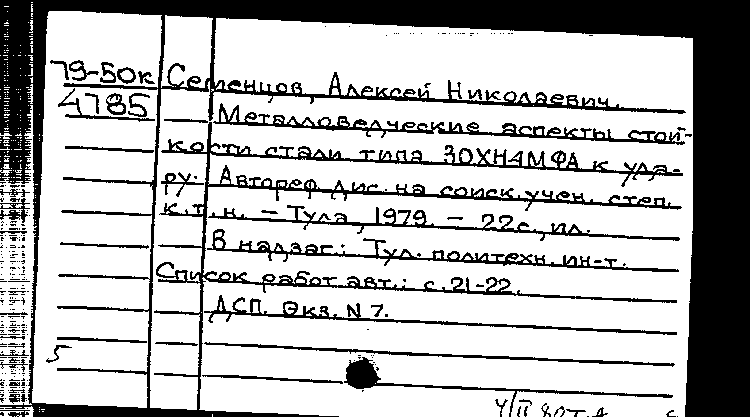 79-50к Семенцов, Алексей Николаевич.
4785 Металловедческие аспекты стой-
кости стали типа 30ХН4МФА к уда-
ру. Автореф. дис. на соиск. учен. степ.
к.т.н. - Тула, 1979. - 22с., ил.
В надзаг.: Тул. политехн. ин-т.
Список работ авт.: с. 21-22.
ДСП. Экз. N 7.
5